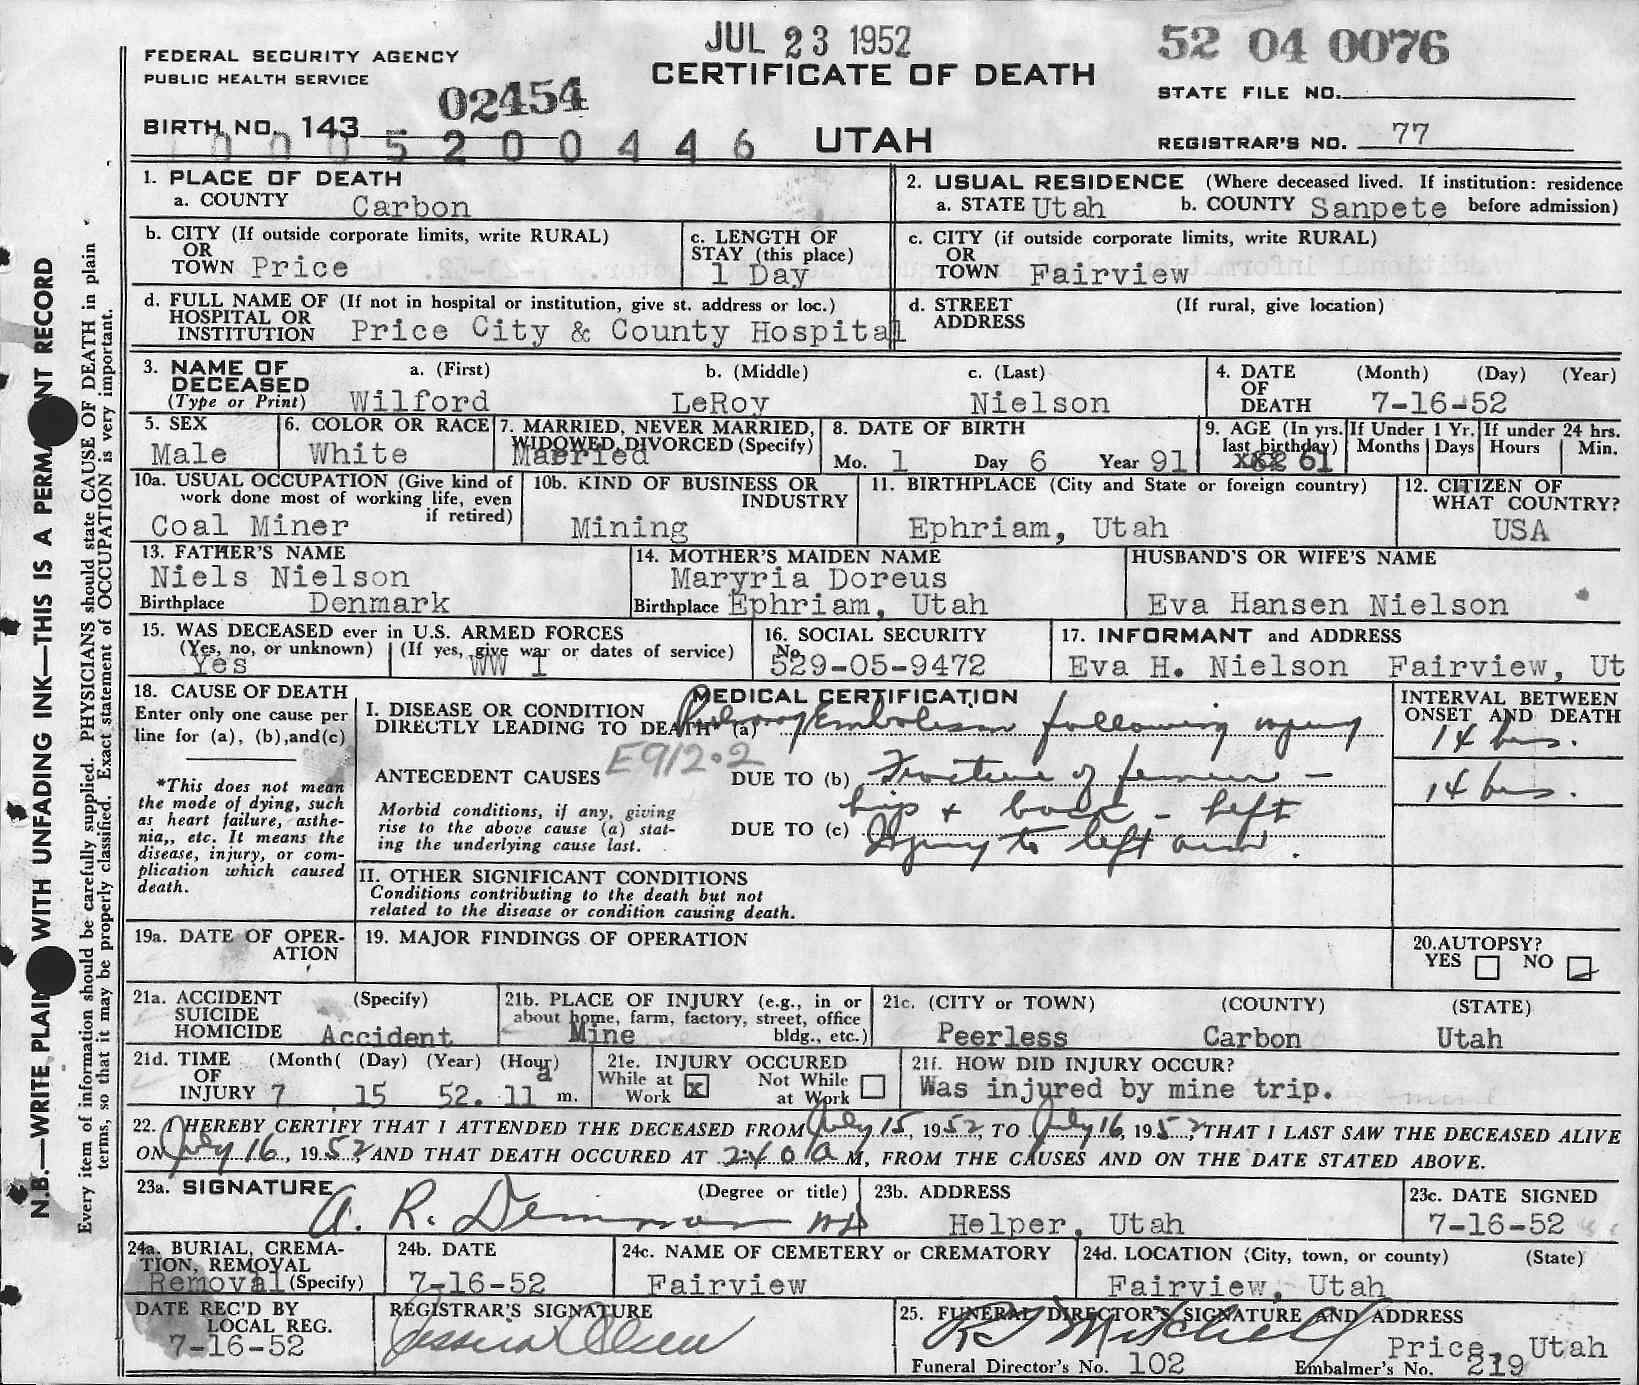 JUL 23 1952
52 04 0076
FEDERAL SECURITY AGENCY
PUBLIC HEALTH SERVICE
CERTIFICATE OF DEATH
STATE FILE NO.
02454
BIRTH NO. 143
5 2 0 0 4 4 6
UTAH
REGISTRAR'S NO. 77
1. PLACE OF DEATH
a. COUNTY Carbon
2. USUAL RESIDENCE (Where deceased lived. If institution: residence
a. STATE Utah b. COUNTY Sanpete before admission)
b. CITY (If outside corporate limits, write RURAL)
OR
TOWN Price
c. LENGTH OF
STAY (this place)
1 Day
c. CITY (if outside corporate limits, write RURAL)
OR
TOWN Fairview
d. FULL NAME OF (If not in hospital or institution, give st. address or loc.)
HOSPITAL OR
INSTITUTION Price City & County Hospital
d. STREET (If rural, give location)
ADDRESS
3. NAME OF a. (First) b. (Middle) c. (Last)
DECEASED
(Type or Print) Wilford LeRoy Nielson
4. DATE (Month) (Day) (Year)
OF
DEATH 7-16-52
5. SEX
Male
6. COLOR OR RACE
White
7. MARRIED, NEVER MARRIED,
WIDOWED, DIVORCED (Specify)
Married
8. DATE OF BIRTH
Mo. 1 Day 6 Year 91
9. AGE (In yrs.
last birthday)
61
If Under 1 Yr.
Months Days
If under 24 hrs.
Hours Min.
10a. USUAL OCCUPATION (Give kind of
work done most of working life, even
if retired)
Coal Miner
10b. KIND OF BUSINESS OR
INDUSTRY
Mining
11. BIRTHPLACE (City and State or foreign country)
Ephriam, Utah
12. CITIZEN OF
WHAT COUNTRY?
USA
13. FATHER'S NAME
Niels Nielson
Birthplace Denmark
14. MOTHER'S MAIDEN NAME
Maryria Doreus
Birthplace Ephriam, Utah
HUSBAND'S OR WIFE'S NAME
Eva Hansen Nielson
15. WAS DECEASED ever in U.S. ARMED FORCES
(Yes, no, or unknown) (If yes, give war or dates of service)
Yes WW 1
16. SOCIAL SECURITY
No.
529-05-9472
17. INFORMANT and ADDRESS
Eva H. Nielson Fairview, Ut
18. CAUSE OF DEATH
Enter only one cause per
line for (a), (b), and (c)
*This does not mean
the mode of dying, such
as heart failure, asthe-
nia,, etc. It means the
disease, injury, or com-
plication which caused
death.
MEDICAL CERTIFICATION
I. DISEASE OR CONDITION
DIRECTLY LEADING TO DEATH* (a) Pulmonary Embolism following injury
E912.2
ANTECEDENT CAUSES DUE TO (b) Fracture of femur -
hip & back - left
Morbid conditions, if any, giving
rise to the above cause (a) stat-
ing the underlying cause last.
DUE TO (c) Injury to left arm.
INTERVAL BETWEEN
ONSET AND DEATH
14 hrs.
14 hrs.
II. OTHER SIGNIFICANT CONDITIONS
Conditions contributing to the death but not
related to the disease or condition causing death.
19a. DATE OF OPER-
ATION
19. MAJOR FINDINGS OF OPERATION
20. AUTOPSY?
YES NO
21a. ACCIDENT (Specify)
SUICIDE
HOMICIDE Accident
21b. PLACE OF INJURY (e.g., in or
about home, farm, factory, street, office
bldg., etc.)
Mine
21c. (CITY or TOWN) (COUNTY) (STATE)
Peerless Carbon Utah
21d. TIME (Month( (Day) (Year) (Hour)
OF
INJURY 7 15 52. 11 a m.
21e. INJURY OCCURED
While at Work x Not While at Work
21f. HOW DID INJURY OCCUR?
Was injured by mine trip.
22. I HEREBY CERTIFY THAT I ATTENDED THE DECEASED FROM July 15, 1952, TO July 16, 1952, THAT I LAST SAW THE DECEASED ALIVE
ON July 16, 1952, AND THAT DEATH OCCURED AT 2:40 a M, FROM THE CAUSES AND ON THE DATE STATED ABOVE.
23a. SIGNATURE (Degree or title)
A. R. Demman MD
23b. ADDRESS
Helper, Utah
23c. DATE SIGNED
7-16-52
24a. BURIAL, CREMA-
TION, REMOVAL
Removal (Specify)
24b. DATE
7-16-52
24c. NAME OF CEMETERY or CREMATORY
Fairview
24d. LOCATION (City, town, or county) (State)
Fairview, Utah
DATE REC'D BY
LOCAL REG.
7-16-52
REGISTRAR'S SIGNATURE
Jessica Olsen
25. FUNERAL DIRECTOR'S SIGNATURE AND ADDRESS
Mitchell
Price, Utah
Funeral Director's No. 102 Embalmer's No. 219
N.B.—WRITE PLAINLY WITH UNFADING INK—THIS IS A PERMANENT RECORD
Every item of information should be carefully supplied. PHYSICIANS should state CAUSE OF DEATH in plain
terms, so that it may be properly classified. Exact statement of OCCUPATION is very important.